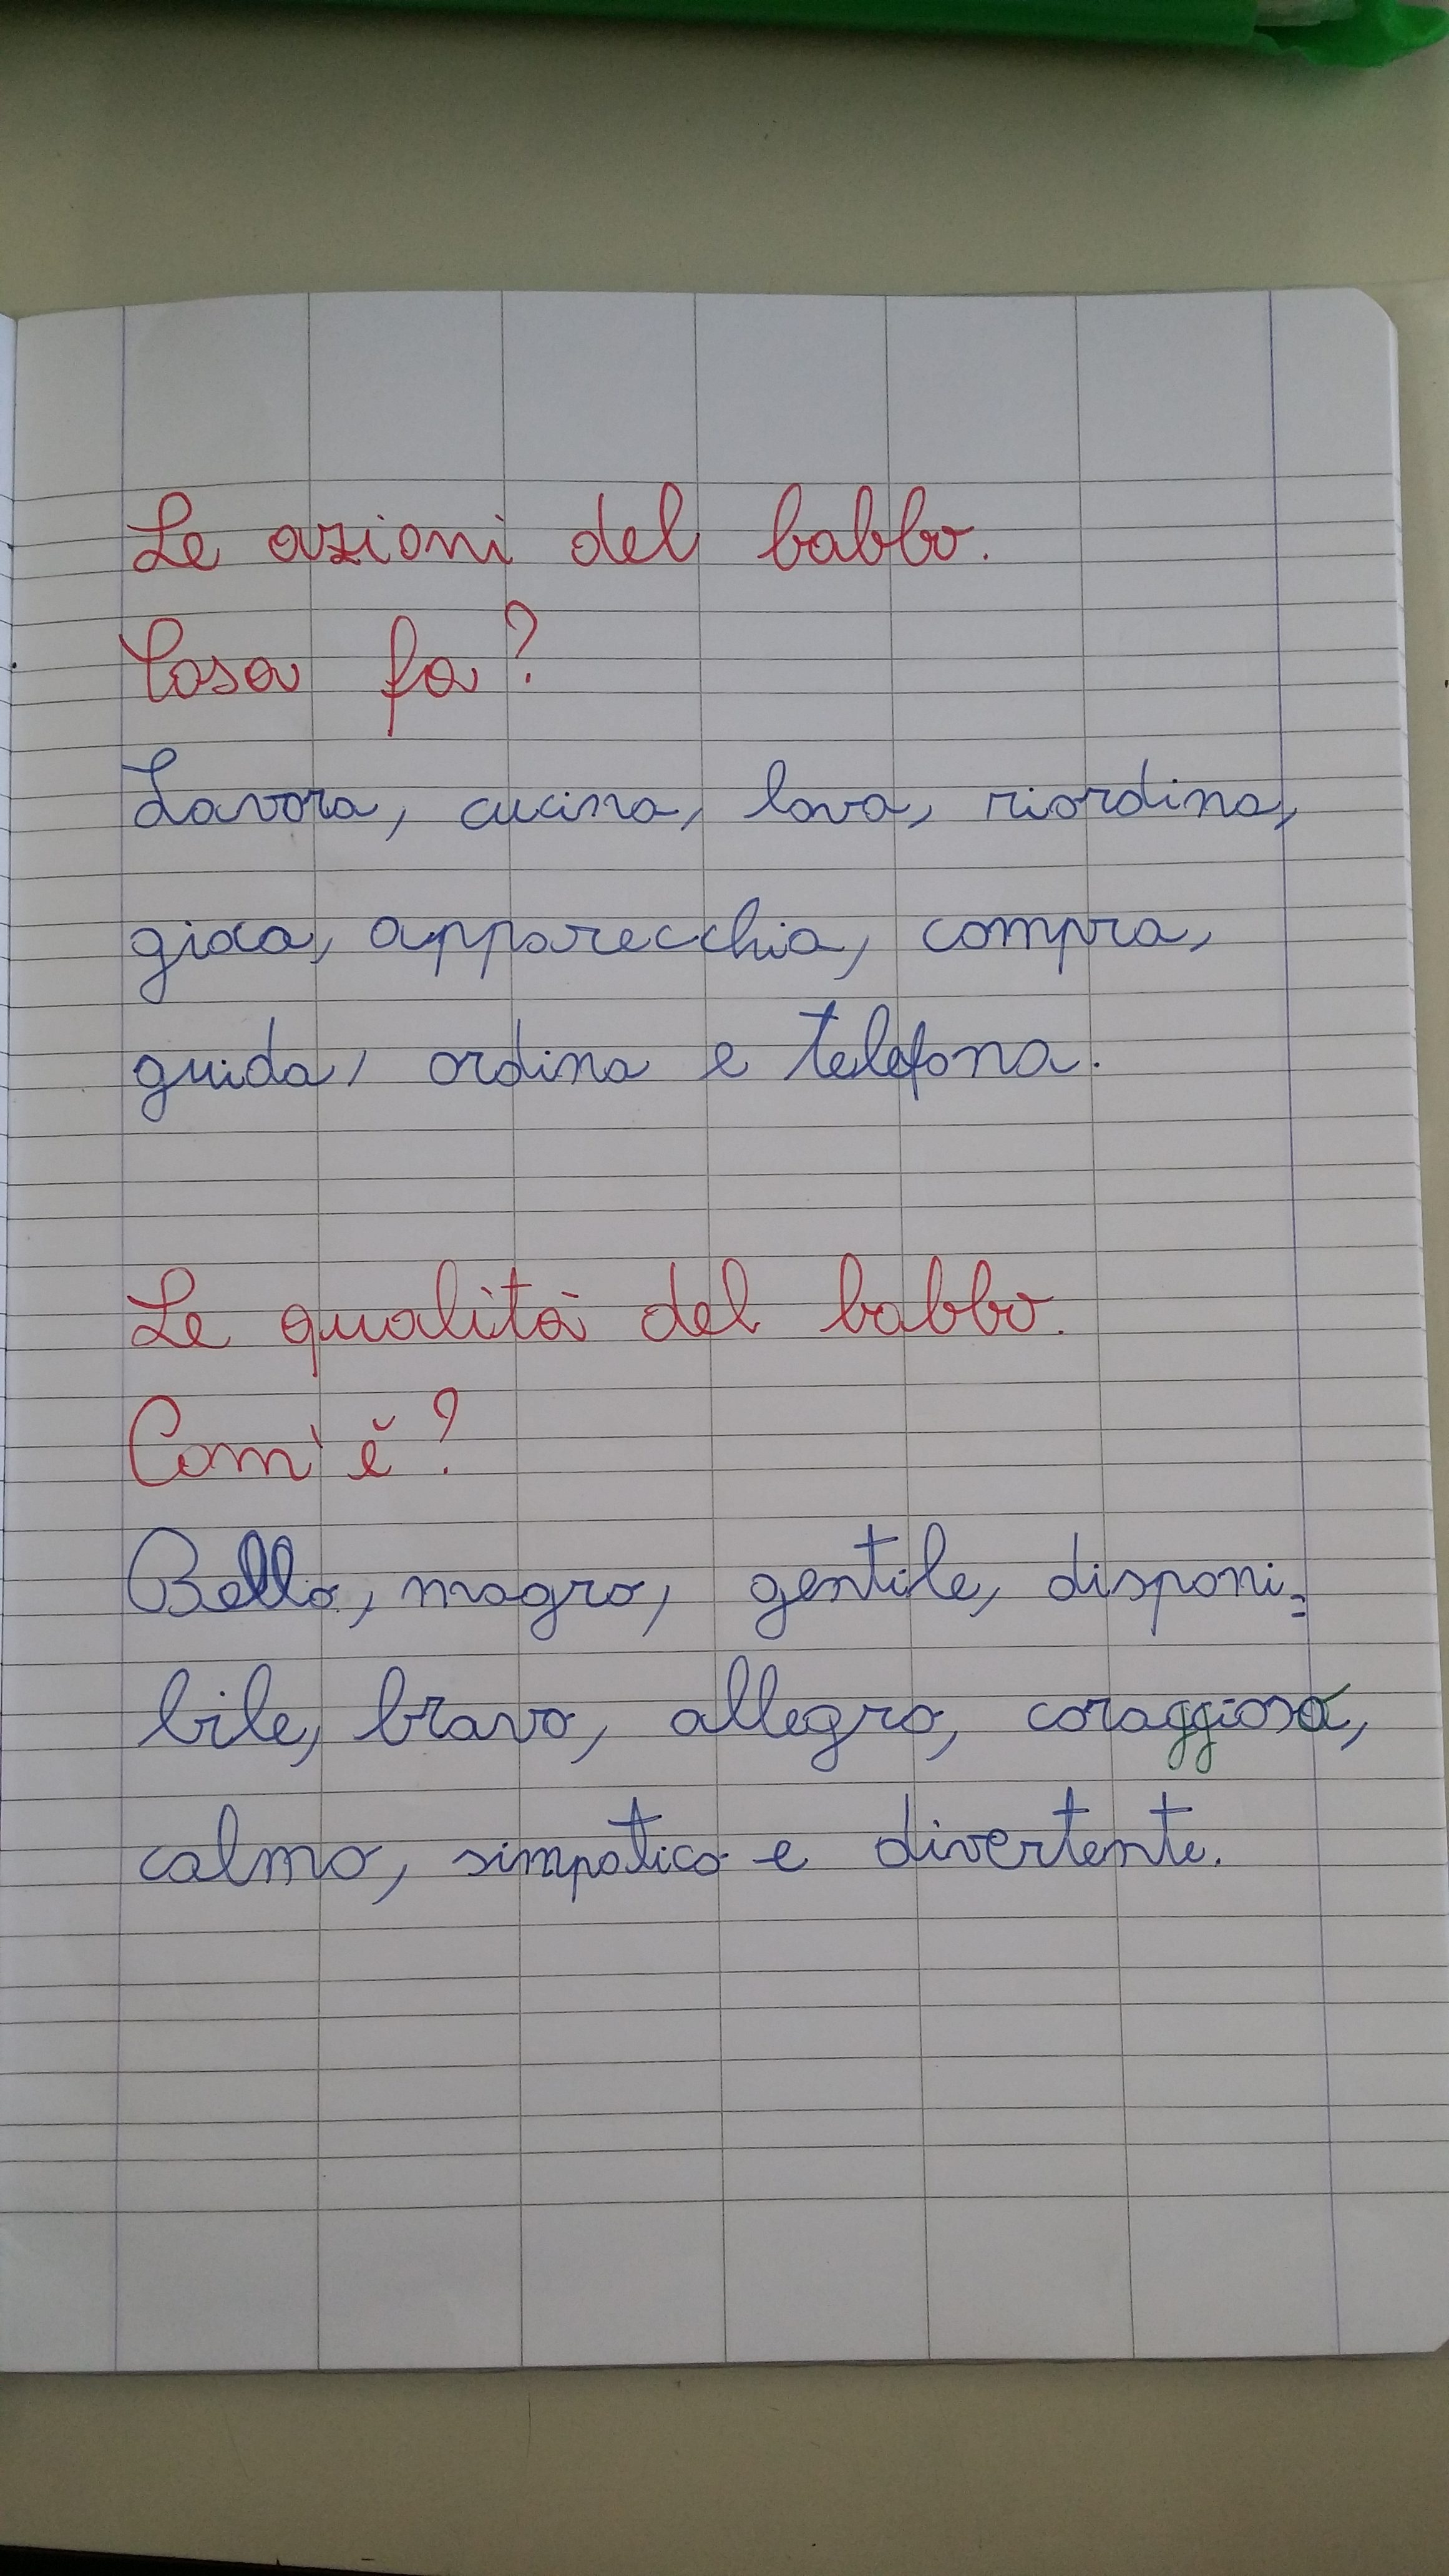 Le azioni del babbo.
Cosa fa?
Lavora, cucina, lava, riordina,
gioca, apparecchia, compra,
guida, ordina e telefona.
Le qualità del babbo.
Com'è?
Bello, magro, gentile, disponi=
bile, bravo, allegro, coraggioso,
calmo, simpatico e divertente.